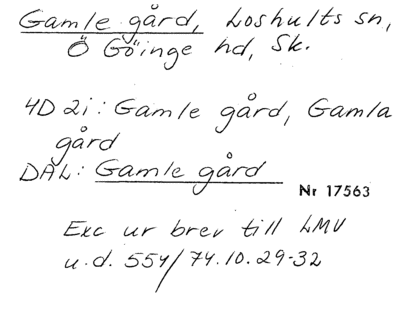 Gamle gård, Loshults sn,
Ö Göinge hd, Sk.
4D 2i: Gamle gård, Gamla
gård
DAL: Gamle gård
Nr 17563
Exc ur brev till LMV
u.d. 554/74.10.29-32